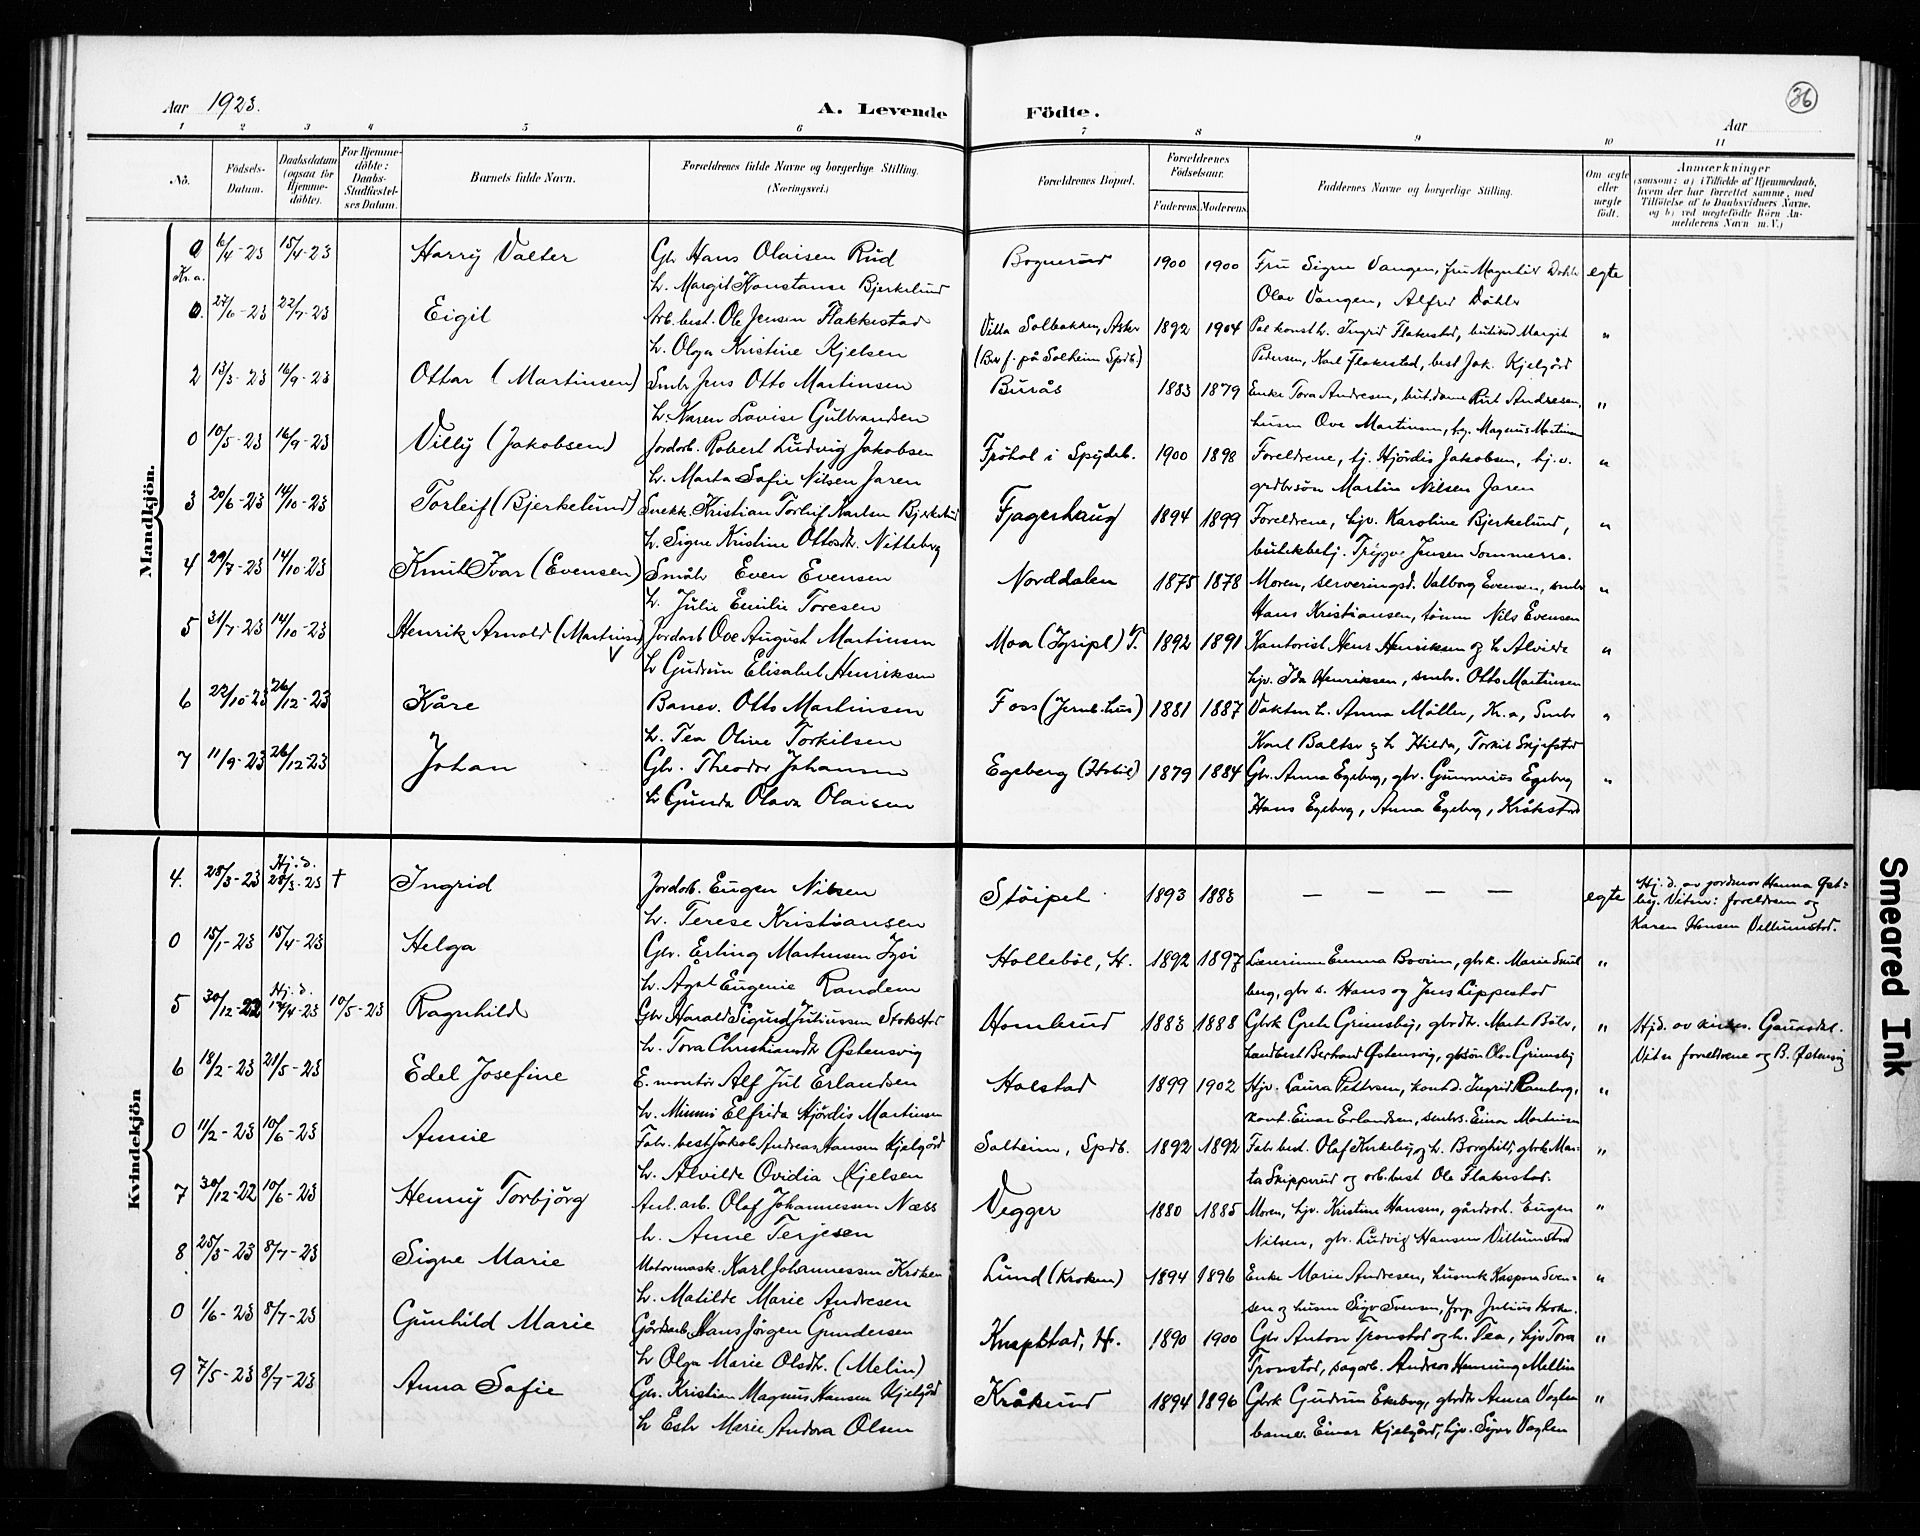 36
Aar 1923.
A. Levende Födte.
Aar
1 2 3 4 5 6 7 8 9 10 11
No.
Födsels-Datum.
Daabsdatum (ogsaa for Hjemme-döbte).
For Hjemme-döbte: Daabs-Stadfæstel-ses Datum.
Barnets fulde Navn.
Forældrenes fulde Navne og borgerlige Stilling. (Næringsvei.)
Forældrenes Bopæl.
Forældrenes Födselsaar.
Faderens. Moderens.
Faddernes Navne og borgerlige Stilling.
Om ægte eller uægte födt.
Anmærkninger
(saasom: a) i Tilfælde af Hjemmedaab,
hvem der har forrettet samme, med
Tilföielse af to Daabsvidners Navne,
og b) ved uægtefödte Börn An-
melderens Navn m. V.)
Mandkjön.
0 16/4-23 15/4-23 Harry Valter Gbr Hans Olaisen Rud Bognerud 1900 1900 Fru Signe Vangen, fru Magnhild egte
Kr.a. h. Margit Konstanse Bjerkelund Olav Vangen, Alfred Döhle
0. 27/6-23 22/7-23 Eigil Arb.best. Ole Jensen Flakkestad Villa Solbakken, Asker 1892 1904 Ingrid Flakestad, Margit "
h. Olga Kristine Kjelsen (Bev f. på Solheim Spdb) Pedersen, Karl Flakestad, best Jak. Kjelgård
2 13/3-23 16/9-23 Ottar (Martinsen) Smbr Jens Otto Martinsen Burås 1883 1879 Enke Tora Andresen, but.dame Rut Andresen, "
h. Karen Lovise Gulbrandsen husm Ove Martinsen, tj. Magnus Martinsen
0 10/5-23 16/9-23 Villy (Jakobsen) Jordarb. Robert Ludvig Jakobsen Fröhol i Spydeb. 1900 1898 Foreldrene, tj. Hjördis Jakobsen, hj.v. "
h. Marta Sofie Nilsen Jaren grdbrsön Martin Nilsen Jaren
3 20/6-23 14/10-23 Torleif (Bjerkelund) Snekk. Kristian Torleif Karlsen Bjerkelund Fjagerhaug 1894 1899 Foreldrene, hjv. Karoline Bjerkelund, "
h. Signe Kristine Ottosdt. Nitteberg butikkbetj. Trygve Jensen Sommerro.
4 29/7-23 14/10-23 Knut Ivar (Evensen) Småbr Even Evensen Norddalen 1875 1878 Moren, serveringsd. Valborg Evensen, smbr "
h. Julie Emilie Toresen Hans Kristiansen, tömm Nils Evensen
5 31/7-23 14/10-23 Henrik Arnold (Martinsen) Jordarb Ove August Martinsen Moa 1892 1891 Kontorist Hens Henriksen og h Alvilde "
v h Gudrun Elisabet Henriksen hjv. Ida Henriksen, smbr. Otto Martinsen
6 22/10-23 26/12-23 Kåre Banev. Otto Martinsen Foss (Jernb.hus) 1881 1887 Vaktm h. Anna Möller, Kr.a, Smbr "
h. Tea Olive Torkilsen Karl Balter og h Hilda, Torkil
7 11/9-23 26/12-23 Johan Gbr. Theodor Johansen Egeberg (Hobøl) 1879 1884 Gbr. Anna Egeberg, gbr. Gunnerius Egeberg "
h Gunda Olava Olaisen Hans Egeberg, Anna Egeberg, Kråkstad
Kvindekjön
4. 28/3-23 Hj.d. 28/3-23 † Ingrid Jordarb. Eugen Nilsen Stöipet 1893 1883 — — — — egte Hj.d. av jordmor Hanna Öst-
h. Terese Kristiansen by. Vitn: foreldrene og
Karen Hansen Villumstad.
0 15/1-23 15/4-23 Helga Gbr. Erling Martinsen Lysö Hollebøl, H. 1892 1897 Lærerinne Emma Bovim, gbrk. Marie "
h. Eugenie Randem berg, gbr s. Hans og Jens Lippestad
5 30/12-22 Hj.d. 12/4-23 10/5-23 Ragnhild Gbr Harald Sigurd Juliussen Stokstad Hombrud 1883 1888 Gbrk Grete Grimsby, gbrdtr. Marte Böler, " Hjd. av Gausdal.
h. Tora Christiandtr Østensvig Landbest Bertrand Østensvig, gbrsön Olav Grimsby Vitn foreldrene og B. Østensvig
6 18/2-23 21/5-23 Edel Josefine E. montör Alf Jul Erlandsen Holstad 1899 1902 Hjv. Laura Pettersen, kont.d. Ingrid Ramberg, "
h. Minni Elfrida Hjördis Martinsen kont. Einar Erlandsen, smbrs. Einar Martinsen
0 11/2-23 10/6-23 Annie Fabr. best Jakob Andreas Hansen Kjelgård Solheim, Spdb. 1892 1892 Fabr best. Olaf Kirkeby og h. Borghild, gbrk Mar- "
h. Alvilde Ovidia Kjelsen ta Skipperud og arb.best Ole Flakestad.
7 30/12-22 10/6-23 Henny Torbjörg Anl.arb. Olaf Johannessen Næss Vegger 1880 1885 Moren, hjv. Kristine Hansen, gårdsarb. Eugen "
h. Anne Terjesen Nilsen, gbr. Ludvig Hansen Villumstad
8 25/3-23 8/7-23 Signe Marie Motormask. Karl Johannessen Kroken Lund (Kroken) 1894 1896 Enke Marie Andresen, husmk Kaspara Sven- "
h. Matilde Marie Andresen sen og husm Sigv Svensen, forp Julius
0 1/6-23 8/7-23 Gunhild Marie Gårdsarb Hans Jörgen Gundersen Knapstad, H. 1890 1900 Gbr Anton Tronstad og h. Tea, hjv Tora "
h Olga Marie Olsdtr. (Melin) Tronstad, sagarb. Andreas Henning Mellin
9 7/5-23 8/7-23 Anna Sofie Gbr. Kristian Magnus Hansen Kjelgård Kråkerud 1894 1896 Gbrk Gudrun Ekeberg, gbrdtr Anna Voglen "
h Ester Marie Andora Olsen banev. Einar Kjelgård, hjv. Sigv Voglen
Smeared Ink